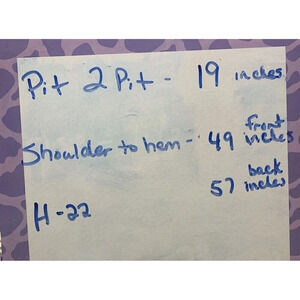 Pit 2 Pit - 19 inches
front
Shoulder to hem - 49 inches
back
57 inches
H - 22